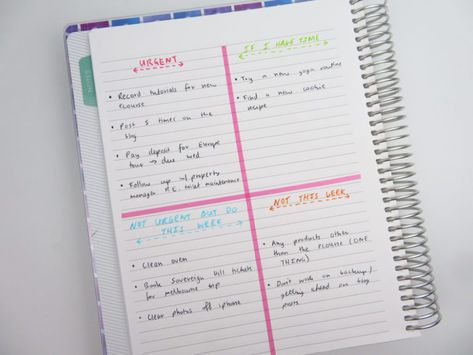 URGENT
• Record tutorials for new
ecourse
• Post 5 times on the
blog
• Pay deposit for Europe
tour → due wed
• Follow up w/ property
manager r.e. toilet maintenance
IF I HAVE TIME
• Try a new yoga routine
• Find a new cookie
recipe
NOT URGENT BUT DO
THIS WEEK
• Clean oven
• Book Sovereign Hill tickets
for melbourne trip
• Clear photos off iphone
NOT THIS WEEK
• Any products other
than the ecourse (ONE
THING)
• Don't work on backup/
getting ahead on blog
posts
NOTES